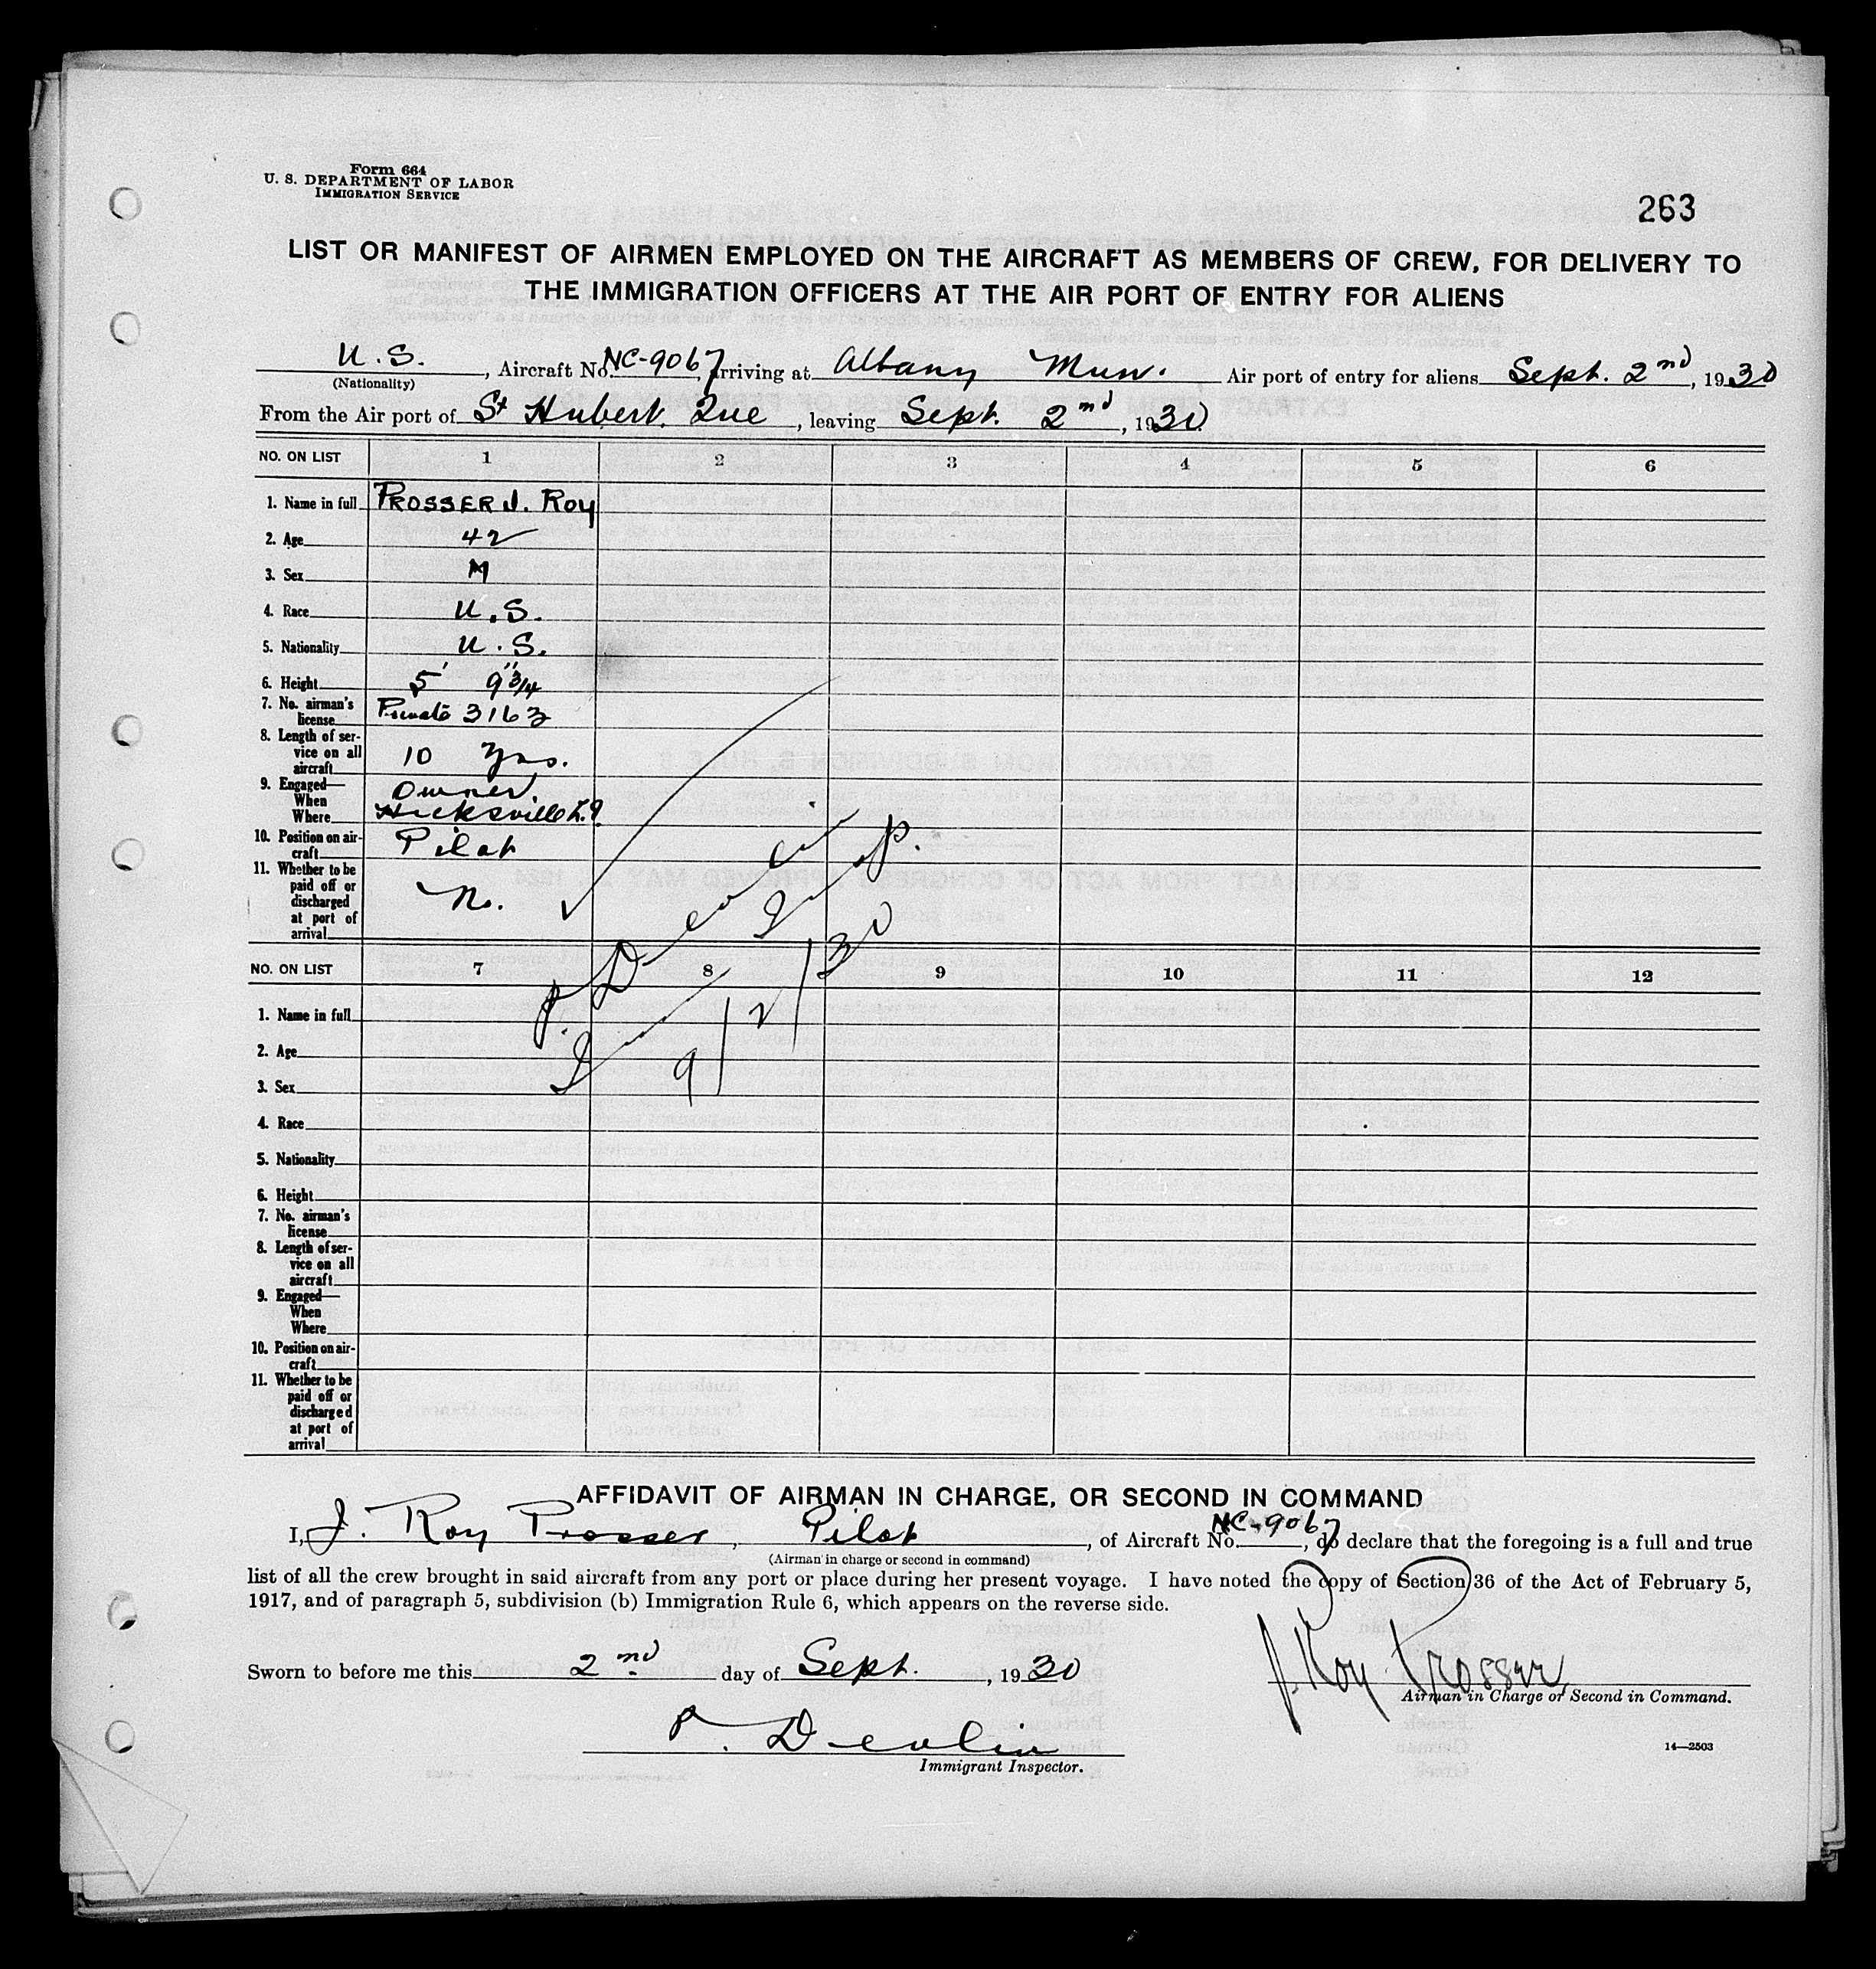 Form 664
U. S. DEPARTMENT OF LABOR
IMMIGRATION SERVICE
263
LIST OR MANIFEST OF AIRMEN EMPLOYED ON THE AIRCRAFT AS MEMBERS OF CREW, FOR DELIVERY TO
THE IMMIGRATION OFFICERS AT THE AIR PORT OF ENTRY FOR ALIENS
U.S., Aircraft No. NC-9067, arriving at Albany Mun. Air port of entry for aliens Sept. 2nd, 1930
(Nationality)
From the Air port of St Hubert. Que, leaving Sept. 2nd, 1930
NO. ON LIST 1 2 3 4 5 6
1. Name in full PROSSER J. ROY
2. Age 42
3. Sex M
4. Race U.S.
5. Nationality U.S.
6. Height 5' 9 3/4"
7. No. airman's
license Private 3163
8. Length of ser-
vice on all
aircraft 10 Yrs.
9. Engaged— Owner
When
Where Hicksville L.I.
10. Position on air-
craft Pilot
11. Whether to be
paid off or
discharged
at port of
arrival No.
P. Devlin
Insp.
9/2/30
NO. ON LIST 7 8 9 10 11 12
1. Name in full
2. Age
3. Sex
4. Race
5. Nationality
6. Height
7. No. airman's
license
8. Length of ser-
vice on all
aircraft
9. Engaged—
When
Where
10. Position on air-
craft
11. Whether to be
paid off or
discharged
at port of
arrival
AFFIDAVIT OF AIRMAN IN CHARGE, OR SECOND IN COMMAND
I, J. Roy Prosser, Pilot, of Aircraft No. NC-9067, do declare that the foregoing is a full and true
(Airman in charge or second in command)
list of all the crew brought in said aircraft from any port or place during her present voyage. I have noted the copy of Section 36 of the Act of February 5,
1917, and of paragraph 5, subdivision (b) Immigration Rule 6, which appears on the reverse side.
Sworn to before me this 2nd day of Sept., 1930
J. Roy Prosser
Airman in Charge or Second in Command.
P. Devlin
Immigrant Inspector.
14—2503